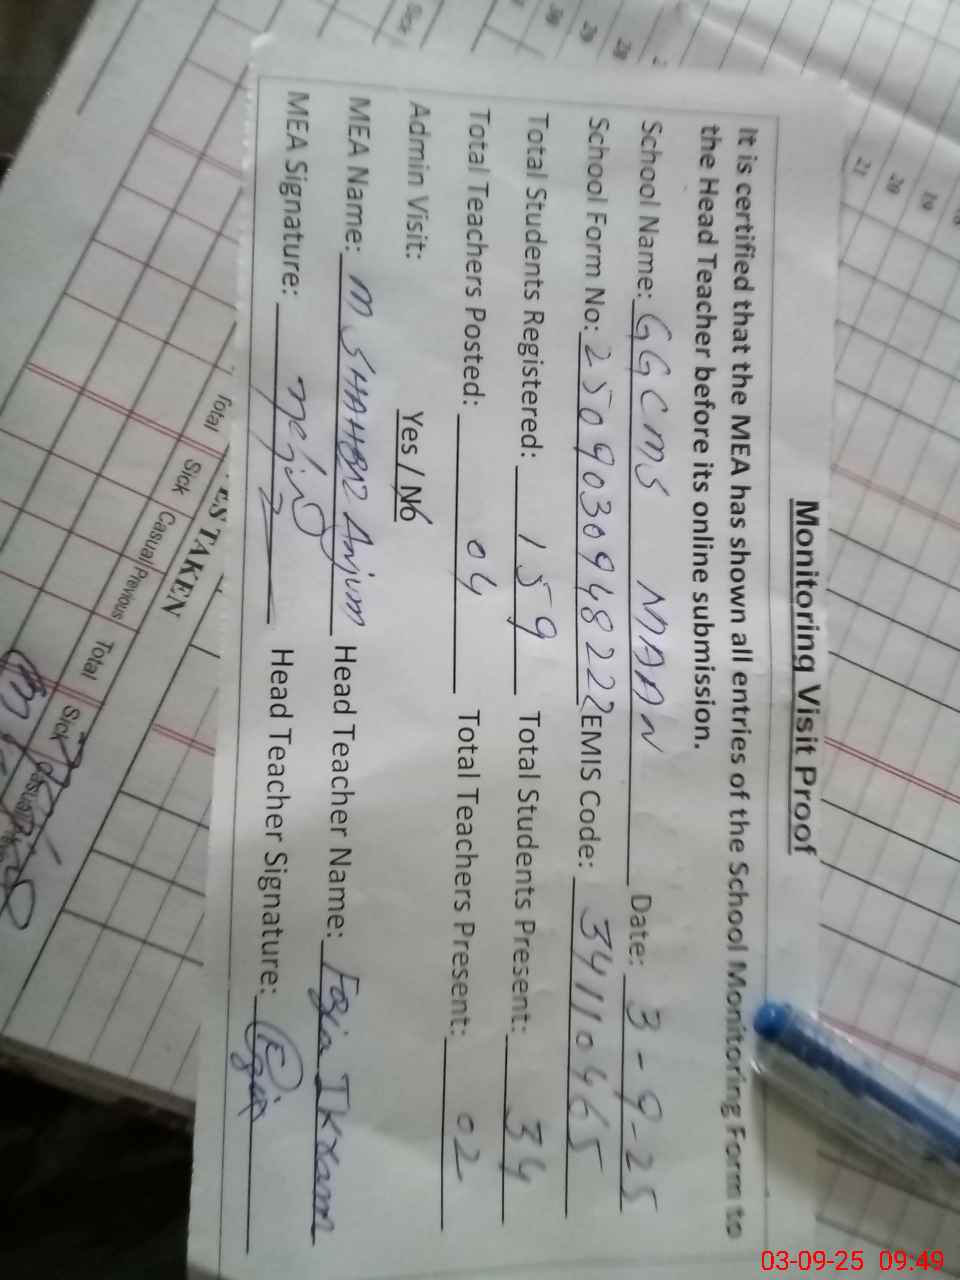 Monitoring Visit Proof
It is certified that the MEA has shown all entries of the School Monitoring Form to
the Head Teacher before its online submission.
School Name: GGCMS MAAN Date: 3-9-25
School Form No: 2509030948222 EMIS Code: 34110465
Total Students Registered: 159 Total Students Present: 34
Total Teachers Posted: 04 Total Teachers Present: 02
Admin Visit: Yes / No
MEA Name: M Anjum Head Teacher Name: Ikram
MEA Signature: Head Teacher Signature:
TAKEN
Total Sick Casual/Previous Total Sick
19
20
21
03-09-25 09:49